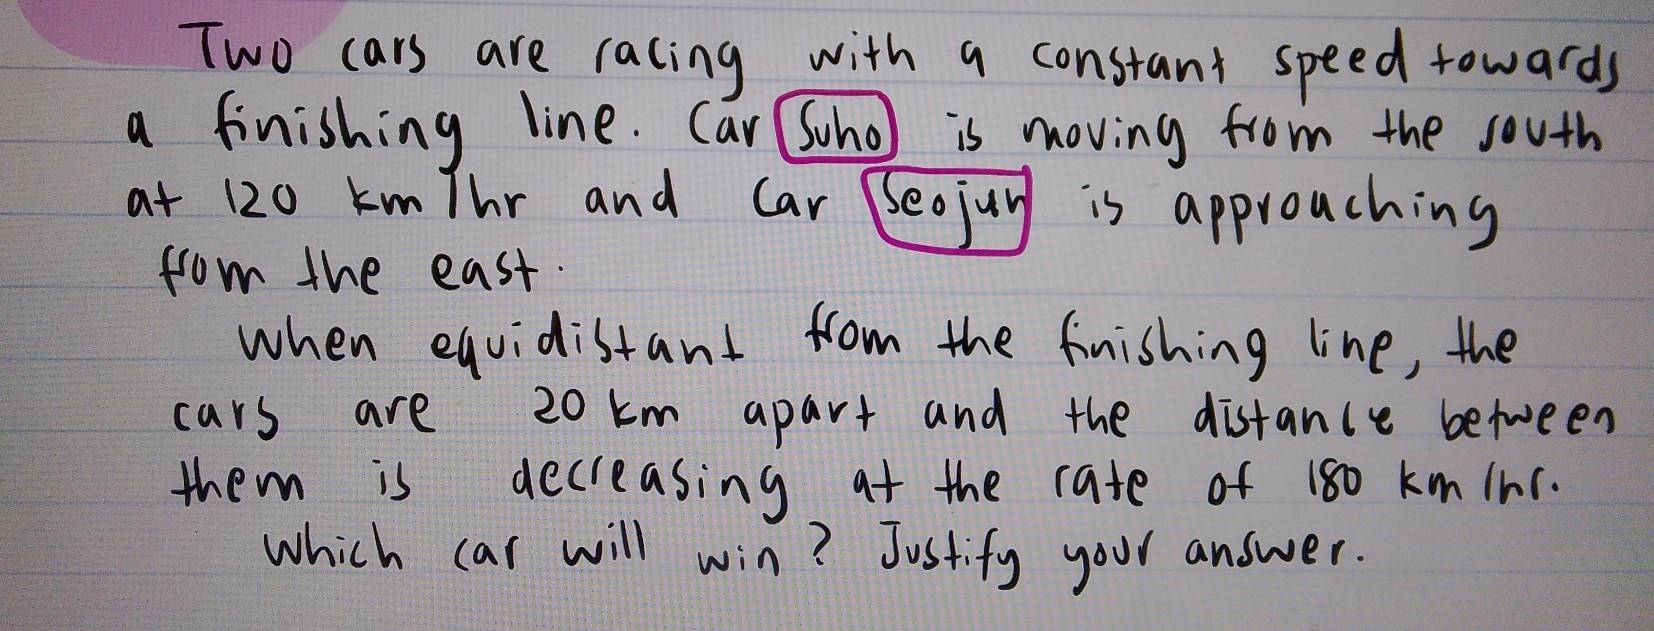 Two cars are racing with a constant speed towards
a finishing line. Car Suho is moving from the south
at 120 km/hr and Car Seojun is approaching
from the east.
When equidistant from the finishing line, the
cars are 20 km apart and the distance between
them is decreasing at the rate of 180 km/hr.
Which car will win? Justify your answer.